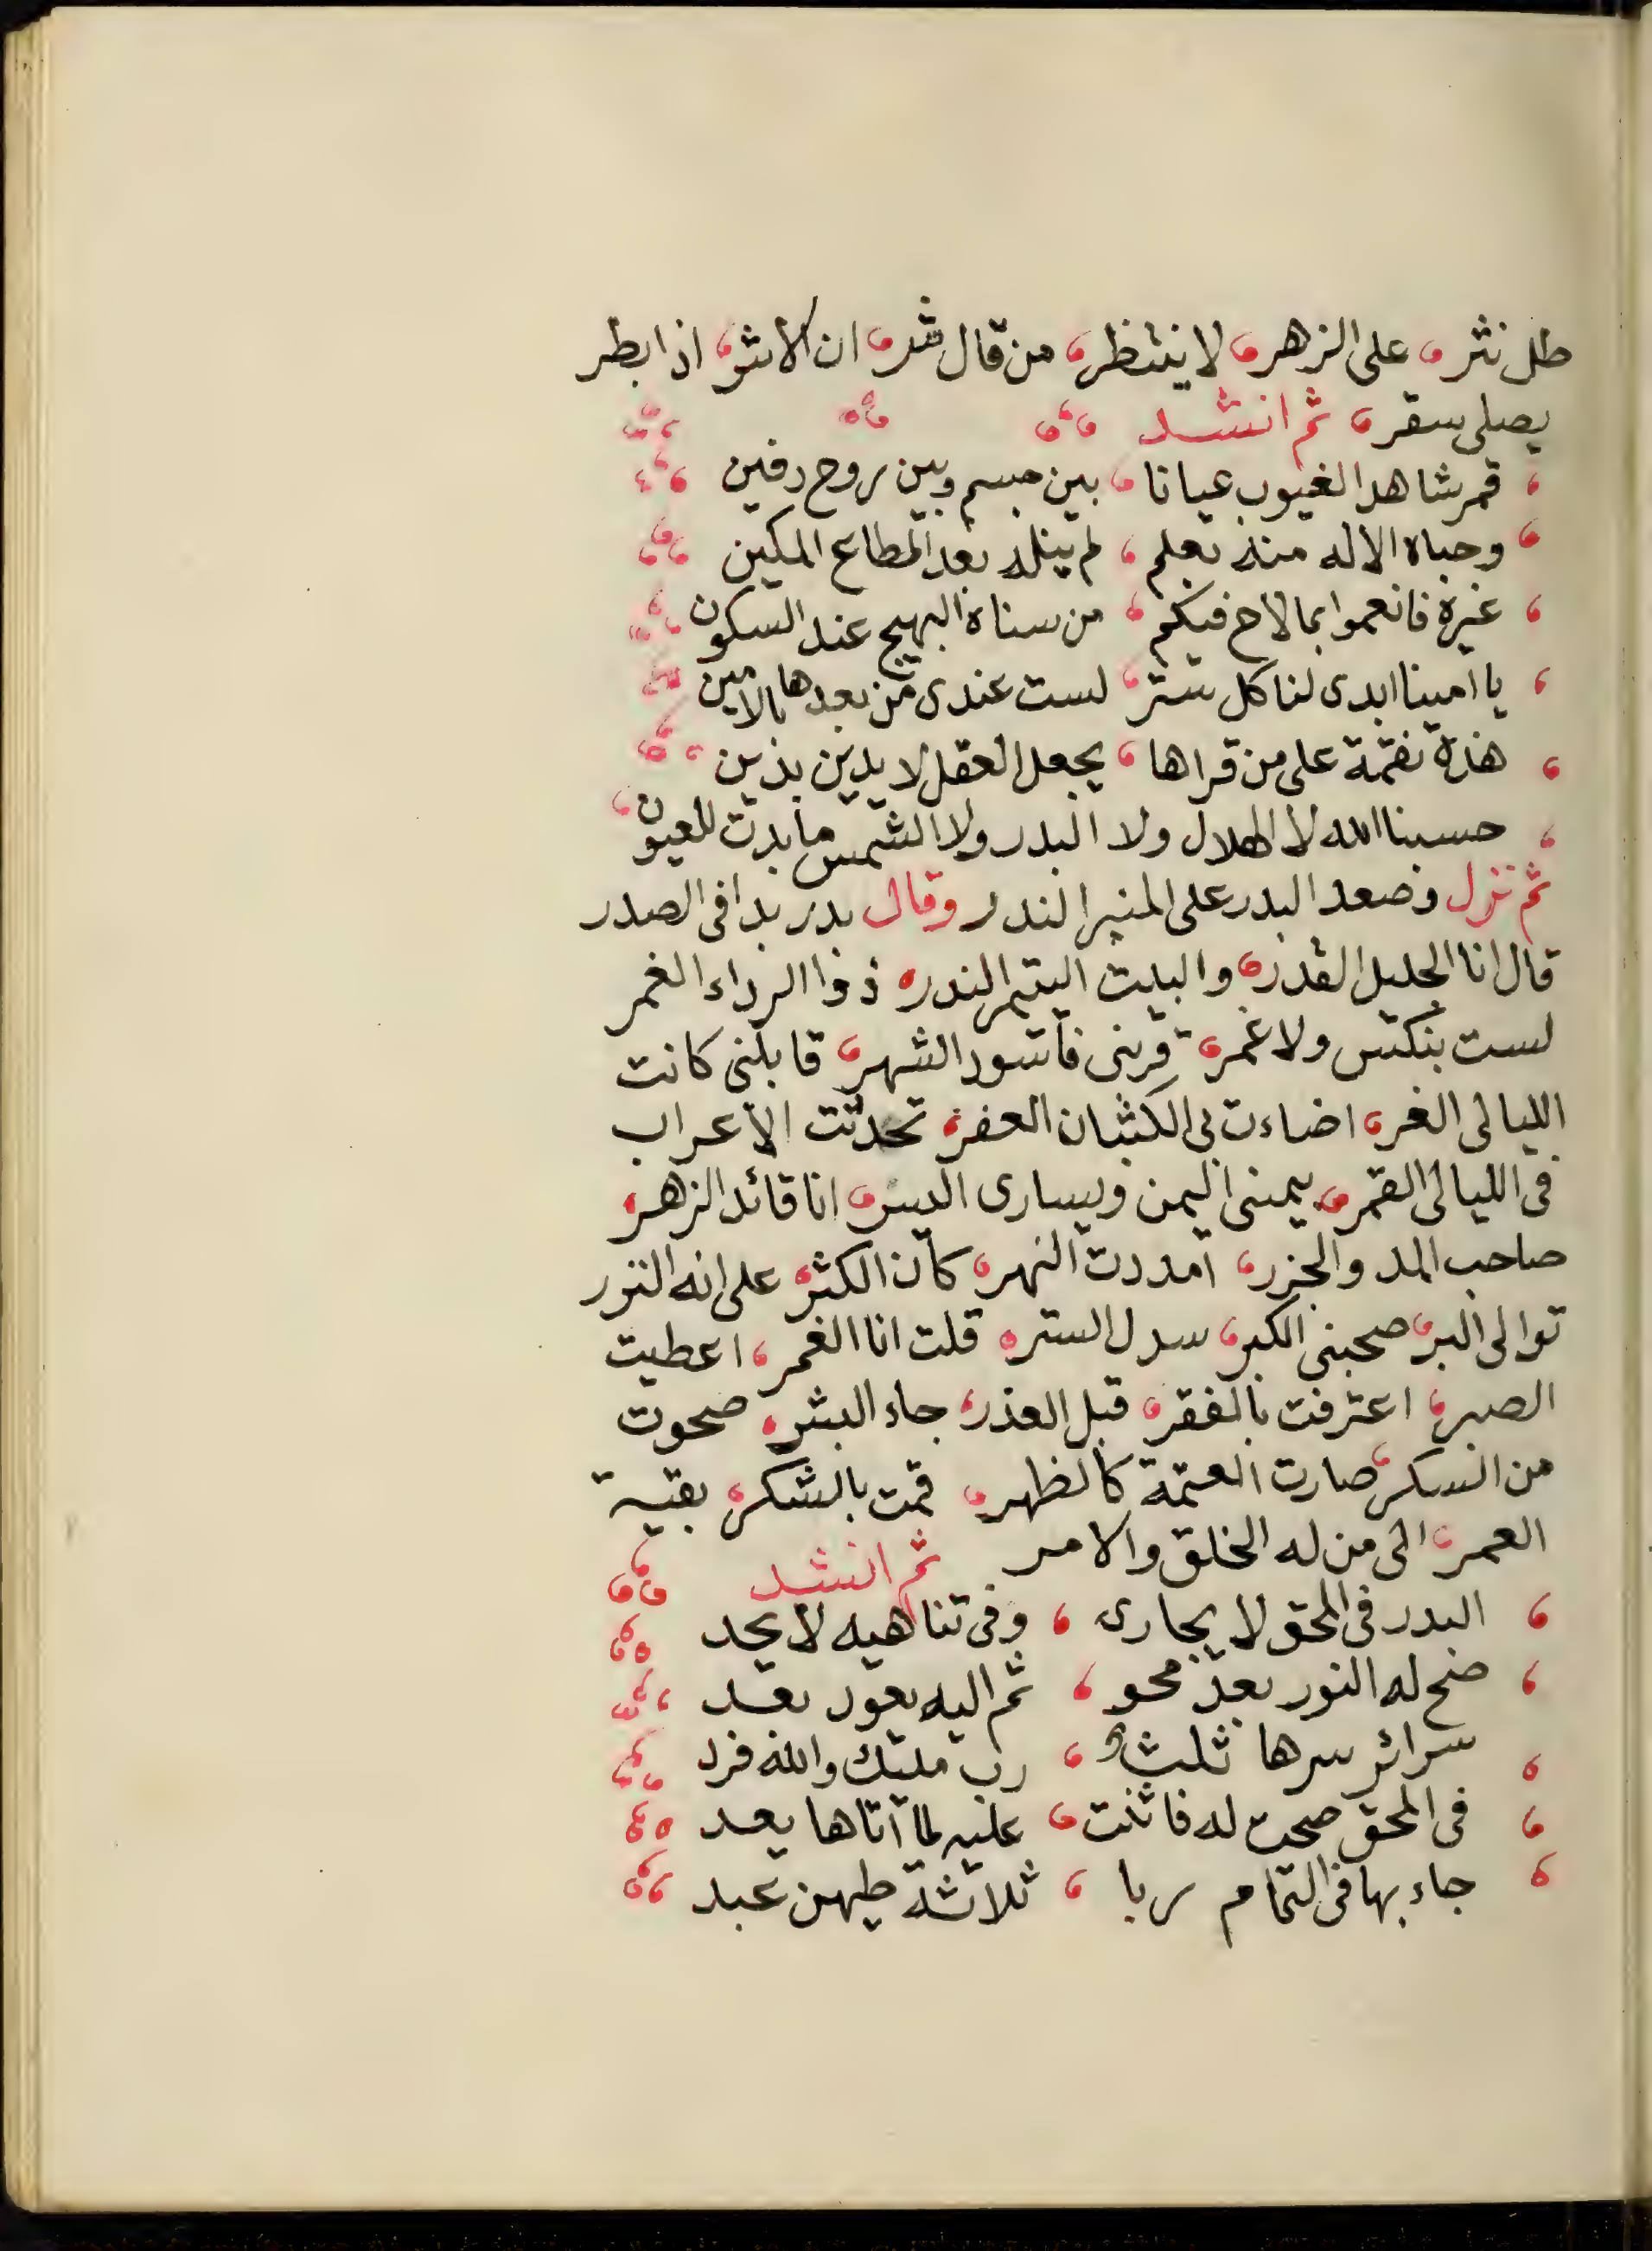 طل نثر، على الزهر، لا ينتظر، من قال شر، ان الاشر، اذا بطر
يصلى سقر، ثم انشد
قمر شاهد الغيوب عيانا، بين جسم وبين روح دفين
وحباه الاله منه بعلم، لم ينله بعد المطاع المكين
غيره فانعموا بما لاح فيكم، من سناه البهيج عند السكون
يا امينا ابدى لنا كل ستر، لست عندى من بعدها بالامين
هذة نقمة على من قراها، يجعل العقل لا يدين بدين
حسبنا الله لا الهلال ولا البدر ولا الشمس ما بدت للعيون
ثم نزل وصعد البدر على المنبر الندر وقال بدر بدا فى الصدر
قال انا الجليل القدر، والبيت اليتيم الندر، ذو الرداء الغمر
لست بنكس ولا غمر، قربنى فاسود الشهر، قابلنى كانت
الليالى الغر، اضاءت بى الكثبان العفر، تحدثت الاعراب
فى الليالى القمر، بيمنى اليمن ويسارى اليسر، انا قائد الزهر
صاحب المد والجزر، امددت النهر، كان الكثر، على انه النزر
توالى البر، صحبنى الكبر، سدل الستر، قلت انا الغمر، اعطيت
الصبر، اعترفت بالفقر، قبل العذر، جاء البشر، صحوت
من السكر، صارت العتمة كالظهر، قمت بالشكر، بقية
العمر، الى من له الخلق والامر ثم انشد
البدر فى المحق لا يجارى، وفى تناهيه لا يحد
صح له النور بعد محو، ثم اليه يعود بعد
سرائر سرها ثلاث، رب مليك والله فرد
فى المحق صحت له فاثنت، عليه لما اتاها يعد
جاء بها فى التمام ربا، ثلاثة طيهن عبد